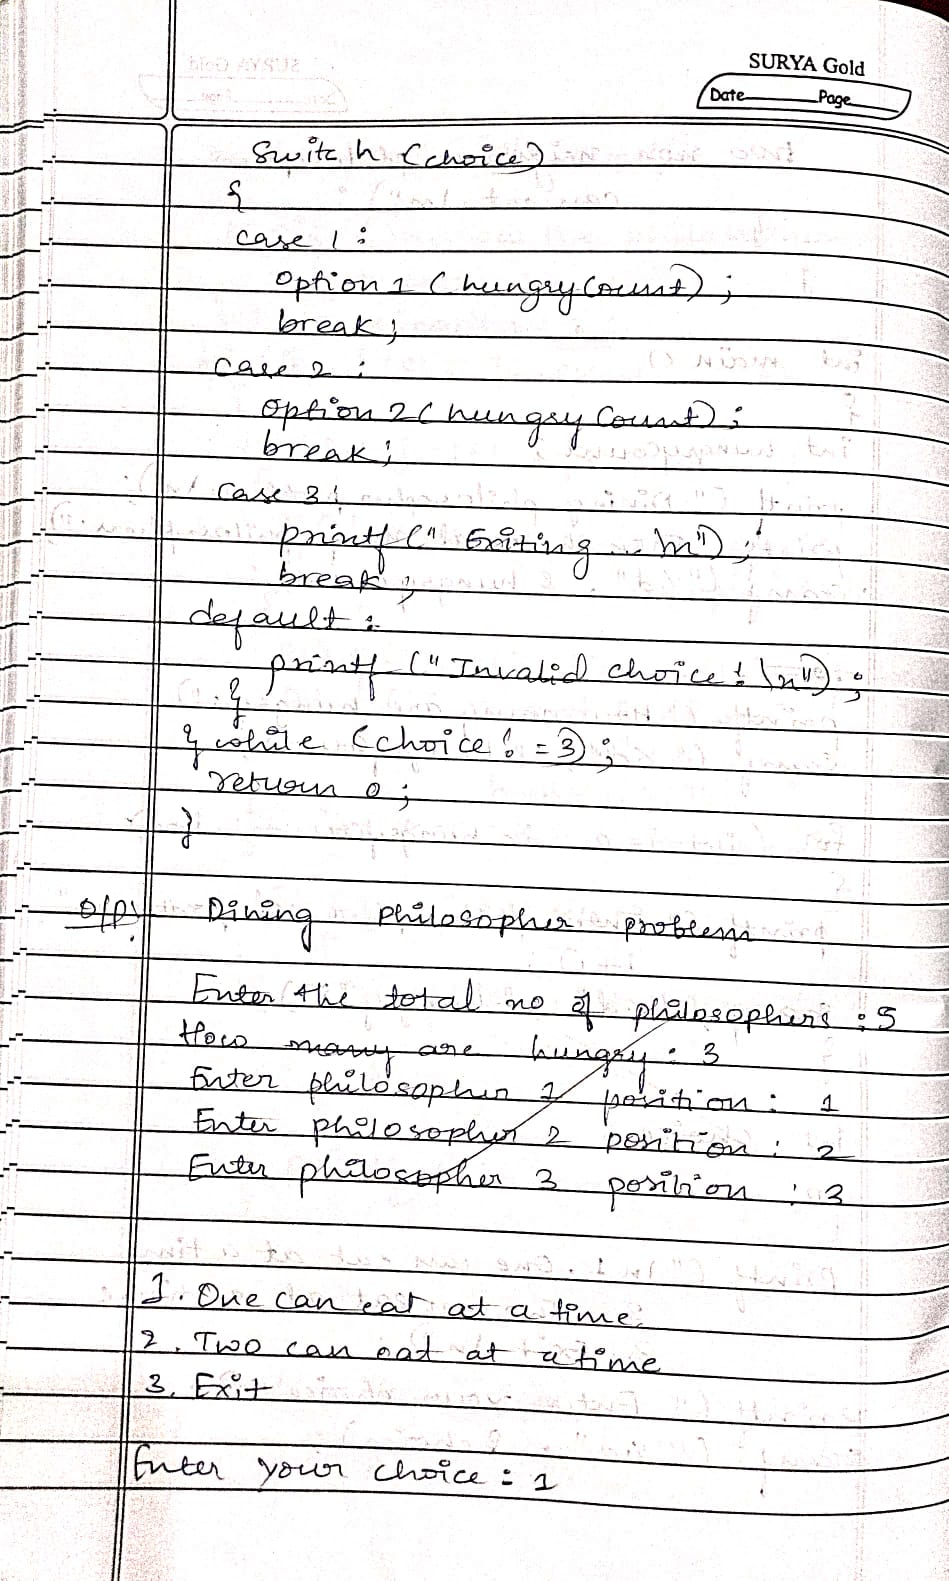 SURYA Gold
Date Page
switch (choice)
{
case 1 :
option 1 (hungryCount) ;
break ;
case 2 :
option 2 (hungryCount) ;
break ;
case 3 :
printf (" Exiting .. \n") ;
break ;
default :
printf ("Invalid choice ! \n") ;
}
} while (choice != 3) ;
return 0 ;
}
O/P: Dining philosopher problem
Enter the total no of philosophers : 5
How many are hungry : 3
Enter philosopher 1 position : 1
Enter philosopher 2 position : 2
Enter philosopher 3 position : 3
1. One can eat at a time
2. Two can eat at a time
3. Exit
Enter your choice : 1